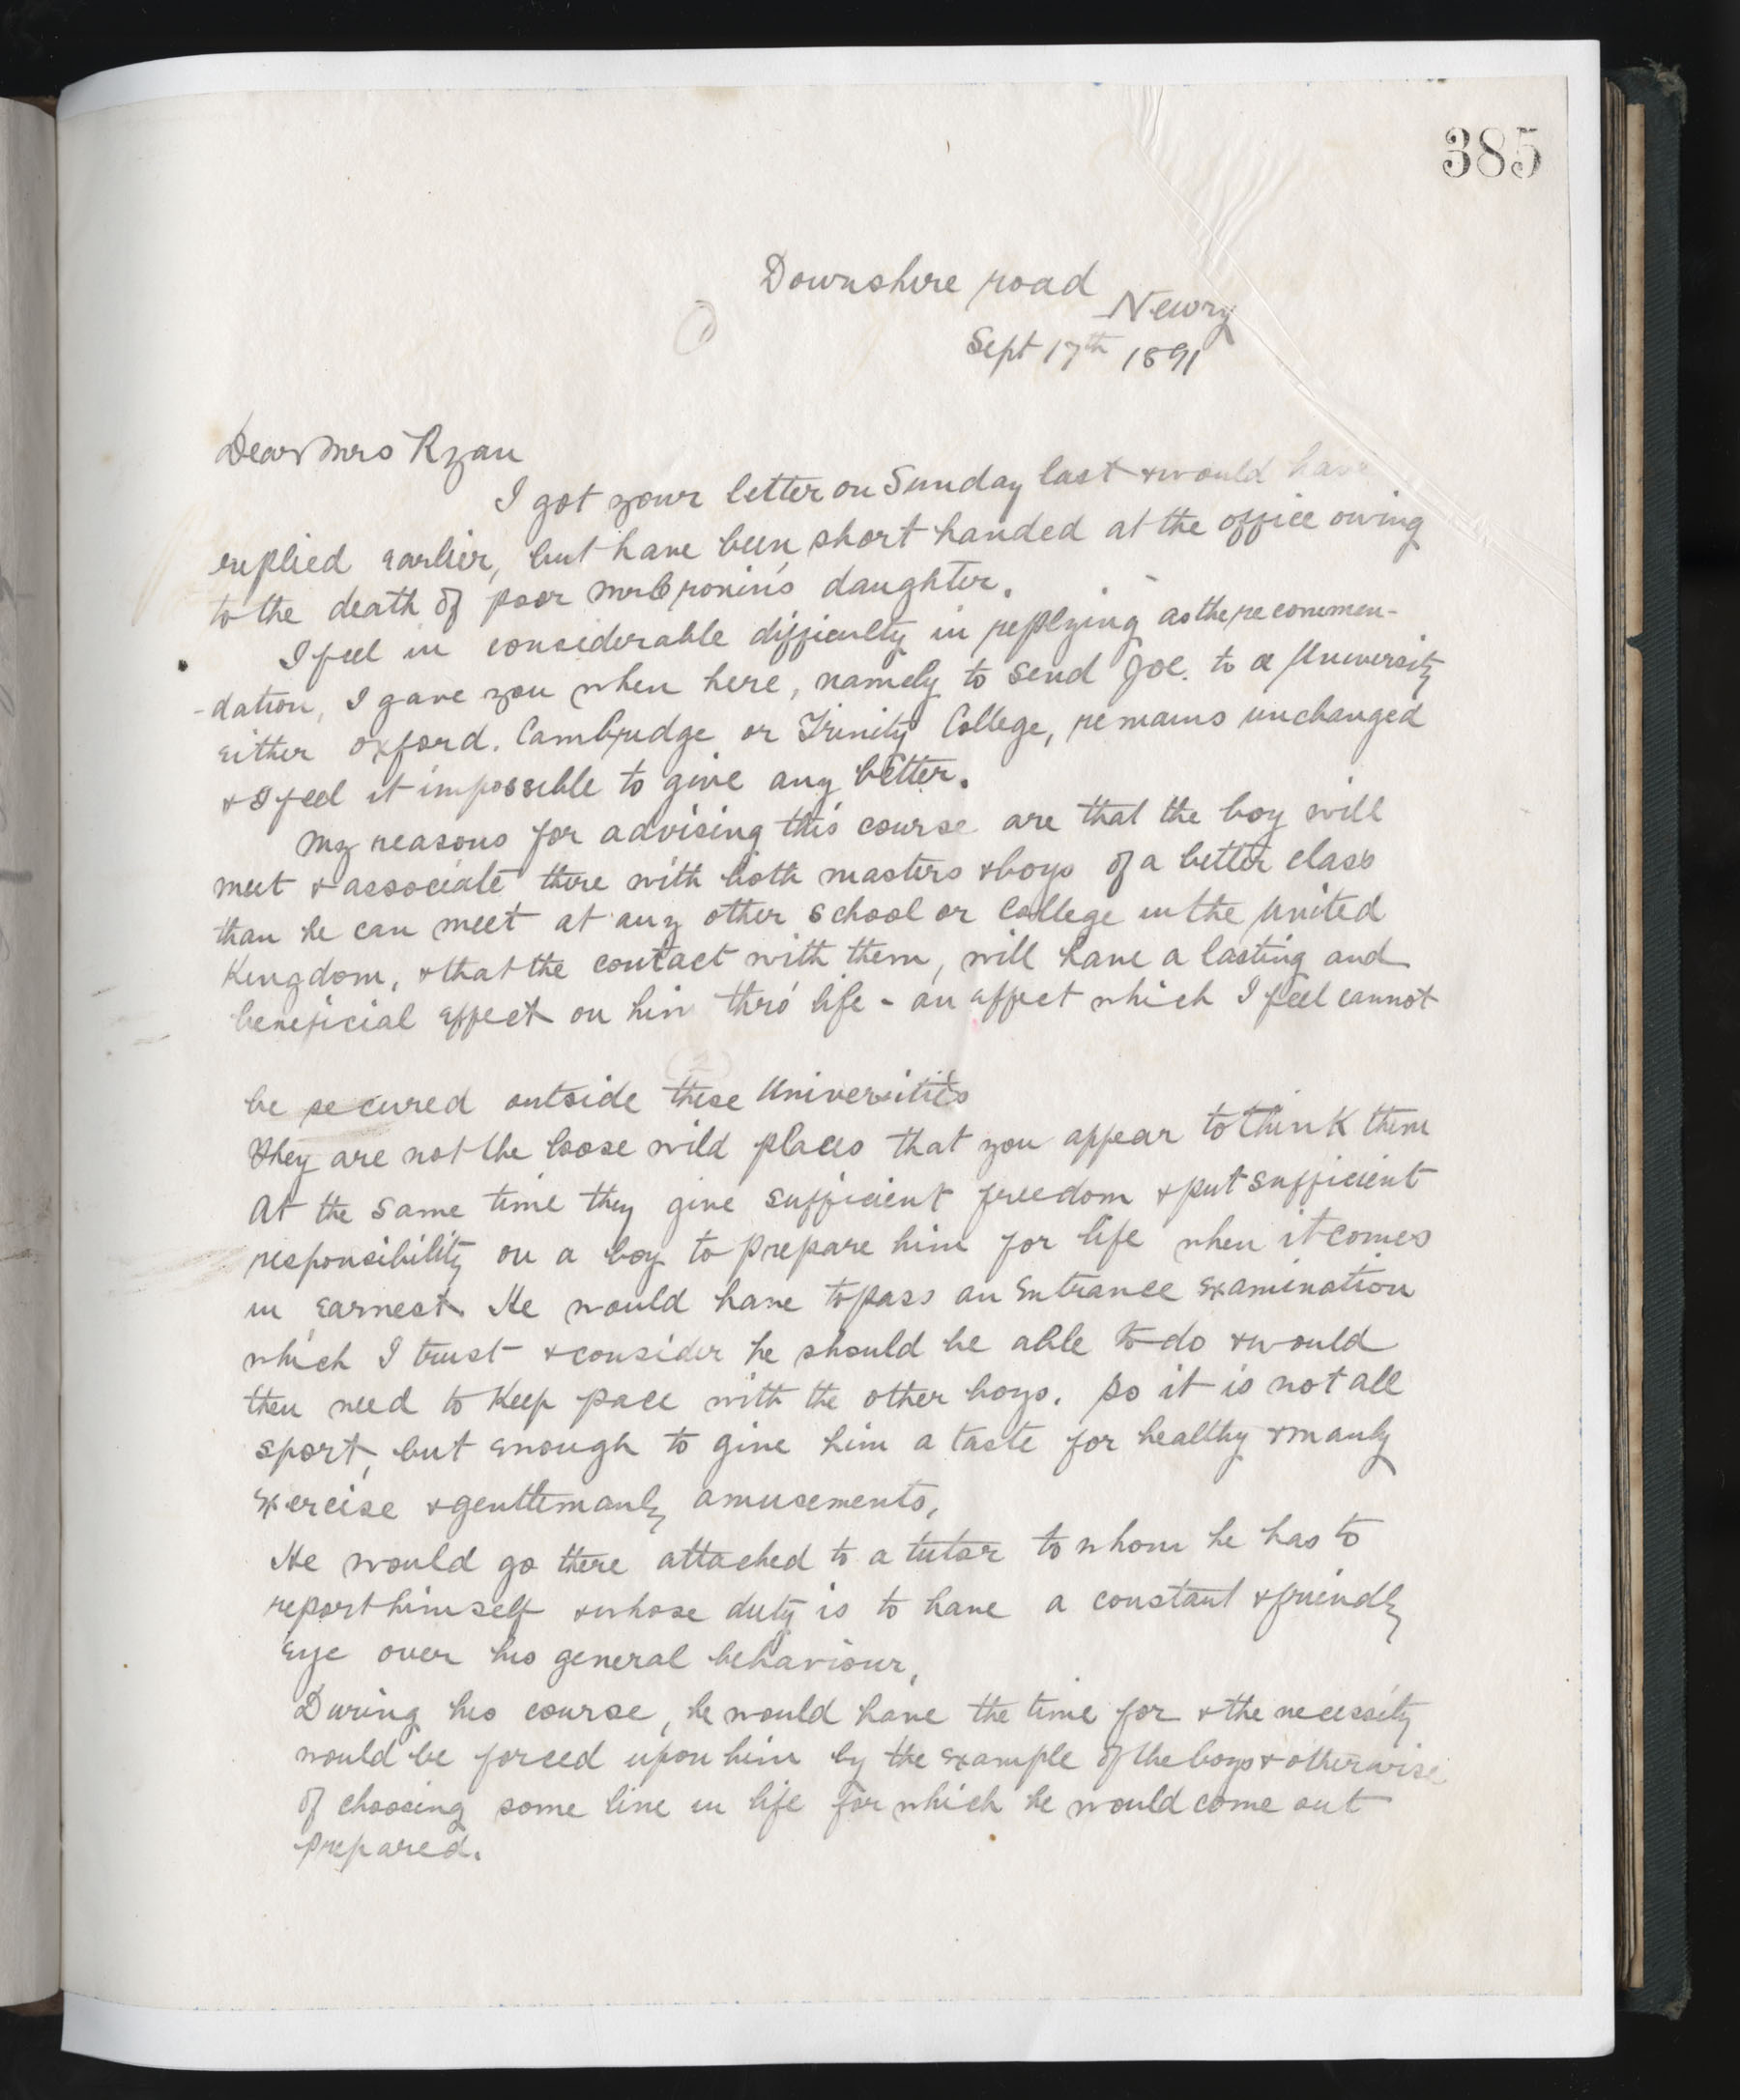 385
Downshire road
Newry
Sept 17th 1891
Dear Mrs Ryan
I got your letter on Sunday last & would have
replied earlier, but have been short handed at the office owing
to the death of poor Mr Cronin's daughter.
I feel in considerable difficulty in replying as the recommen-
-dation, I gave you when here, namely to send Joe. to a University
either Oxford. Cambridge or Trinity College, remains unchanged
& I feel it impossible to give any better.
My reasons for advising this course are that the boy will
meet & associate there with both masters & boys of a better class
than he can meet at any other school or College in the United
Kingdom, & that the contact with them, will have a lasting and
beneficial effect on him thro' life - an effect which I feel cannot
(2)
be secured outside these Universities
They are not the loose wild places that you appear to think them
At the same time they give sufficient freedom & put sufficient
responsibility on a boy to prepare him for life when it comes
in earnest. He would have to pass an Entrance Examination
which I trust & consider he should be able to do & would
then need to keep pace with the other boys. so it is not all
sport, but enough to give him a taste for healthy & manly
exercise & gentlemanly amusements,
He would go there attached to a tutor to whom he has to
report himself & whose duty is to have a constant & friendly
eye over his general behaviour,
During his course, he would have the time for & the necessity
would be forced upon him by the example of the boys & otherwise
of choosing some line in life for which he would come out
prepared.